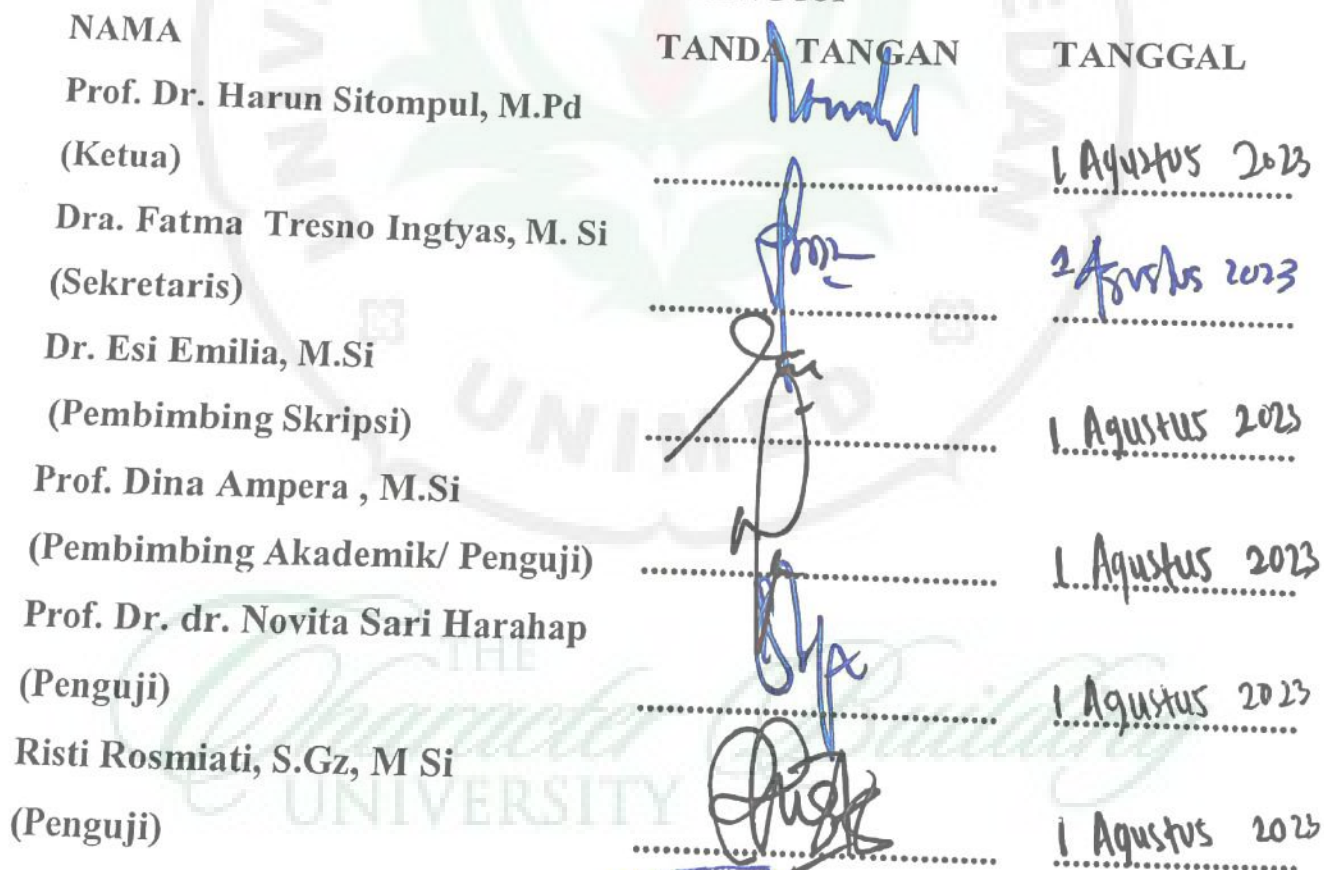 NAMA TANDA TANGAN TANGGAL
Prof. Dr. Harun Sitompul, M.Pd
(Ketua) 1 Agustus 2023
Dra. Fatma Tresno Ingtyas, M. Si
(Sekretaris) 1 Agustus 2023
Dr. Esi Emilia, M.Si
(Pembimbing Skripsi) 1 Agustus 2023
Prof. Dina Ampera , M.Si
(Pembimbing Akademik/ Penguji) 1 Agustus 2023
Prof. Dr. dr. Novita Sari Harahap
(Penguji) 1 Agustus 2023
Risti Rosmiati, S.Gz, M Si
(Penguji) 1 Agustus 2023
UNIMED
THE
Character Building
UNIVERSITY